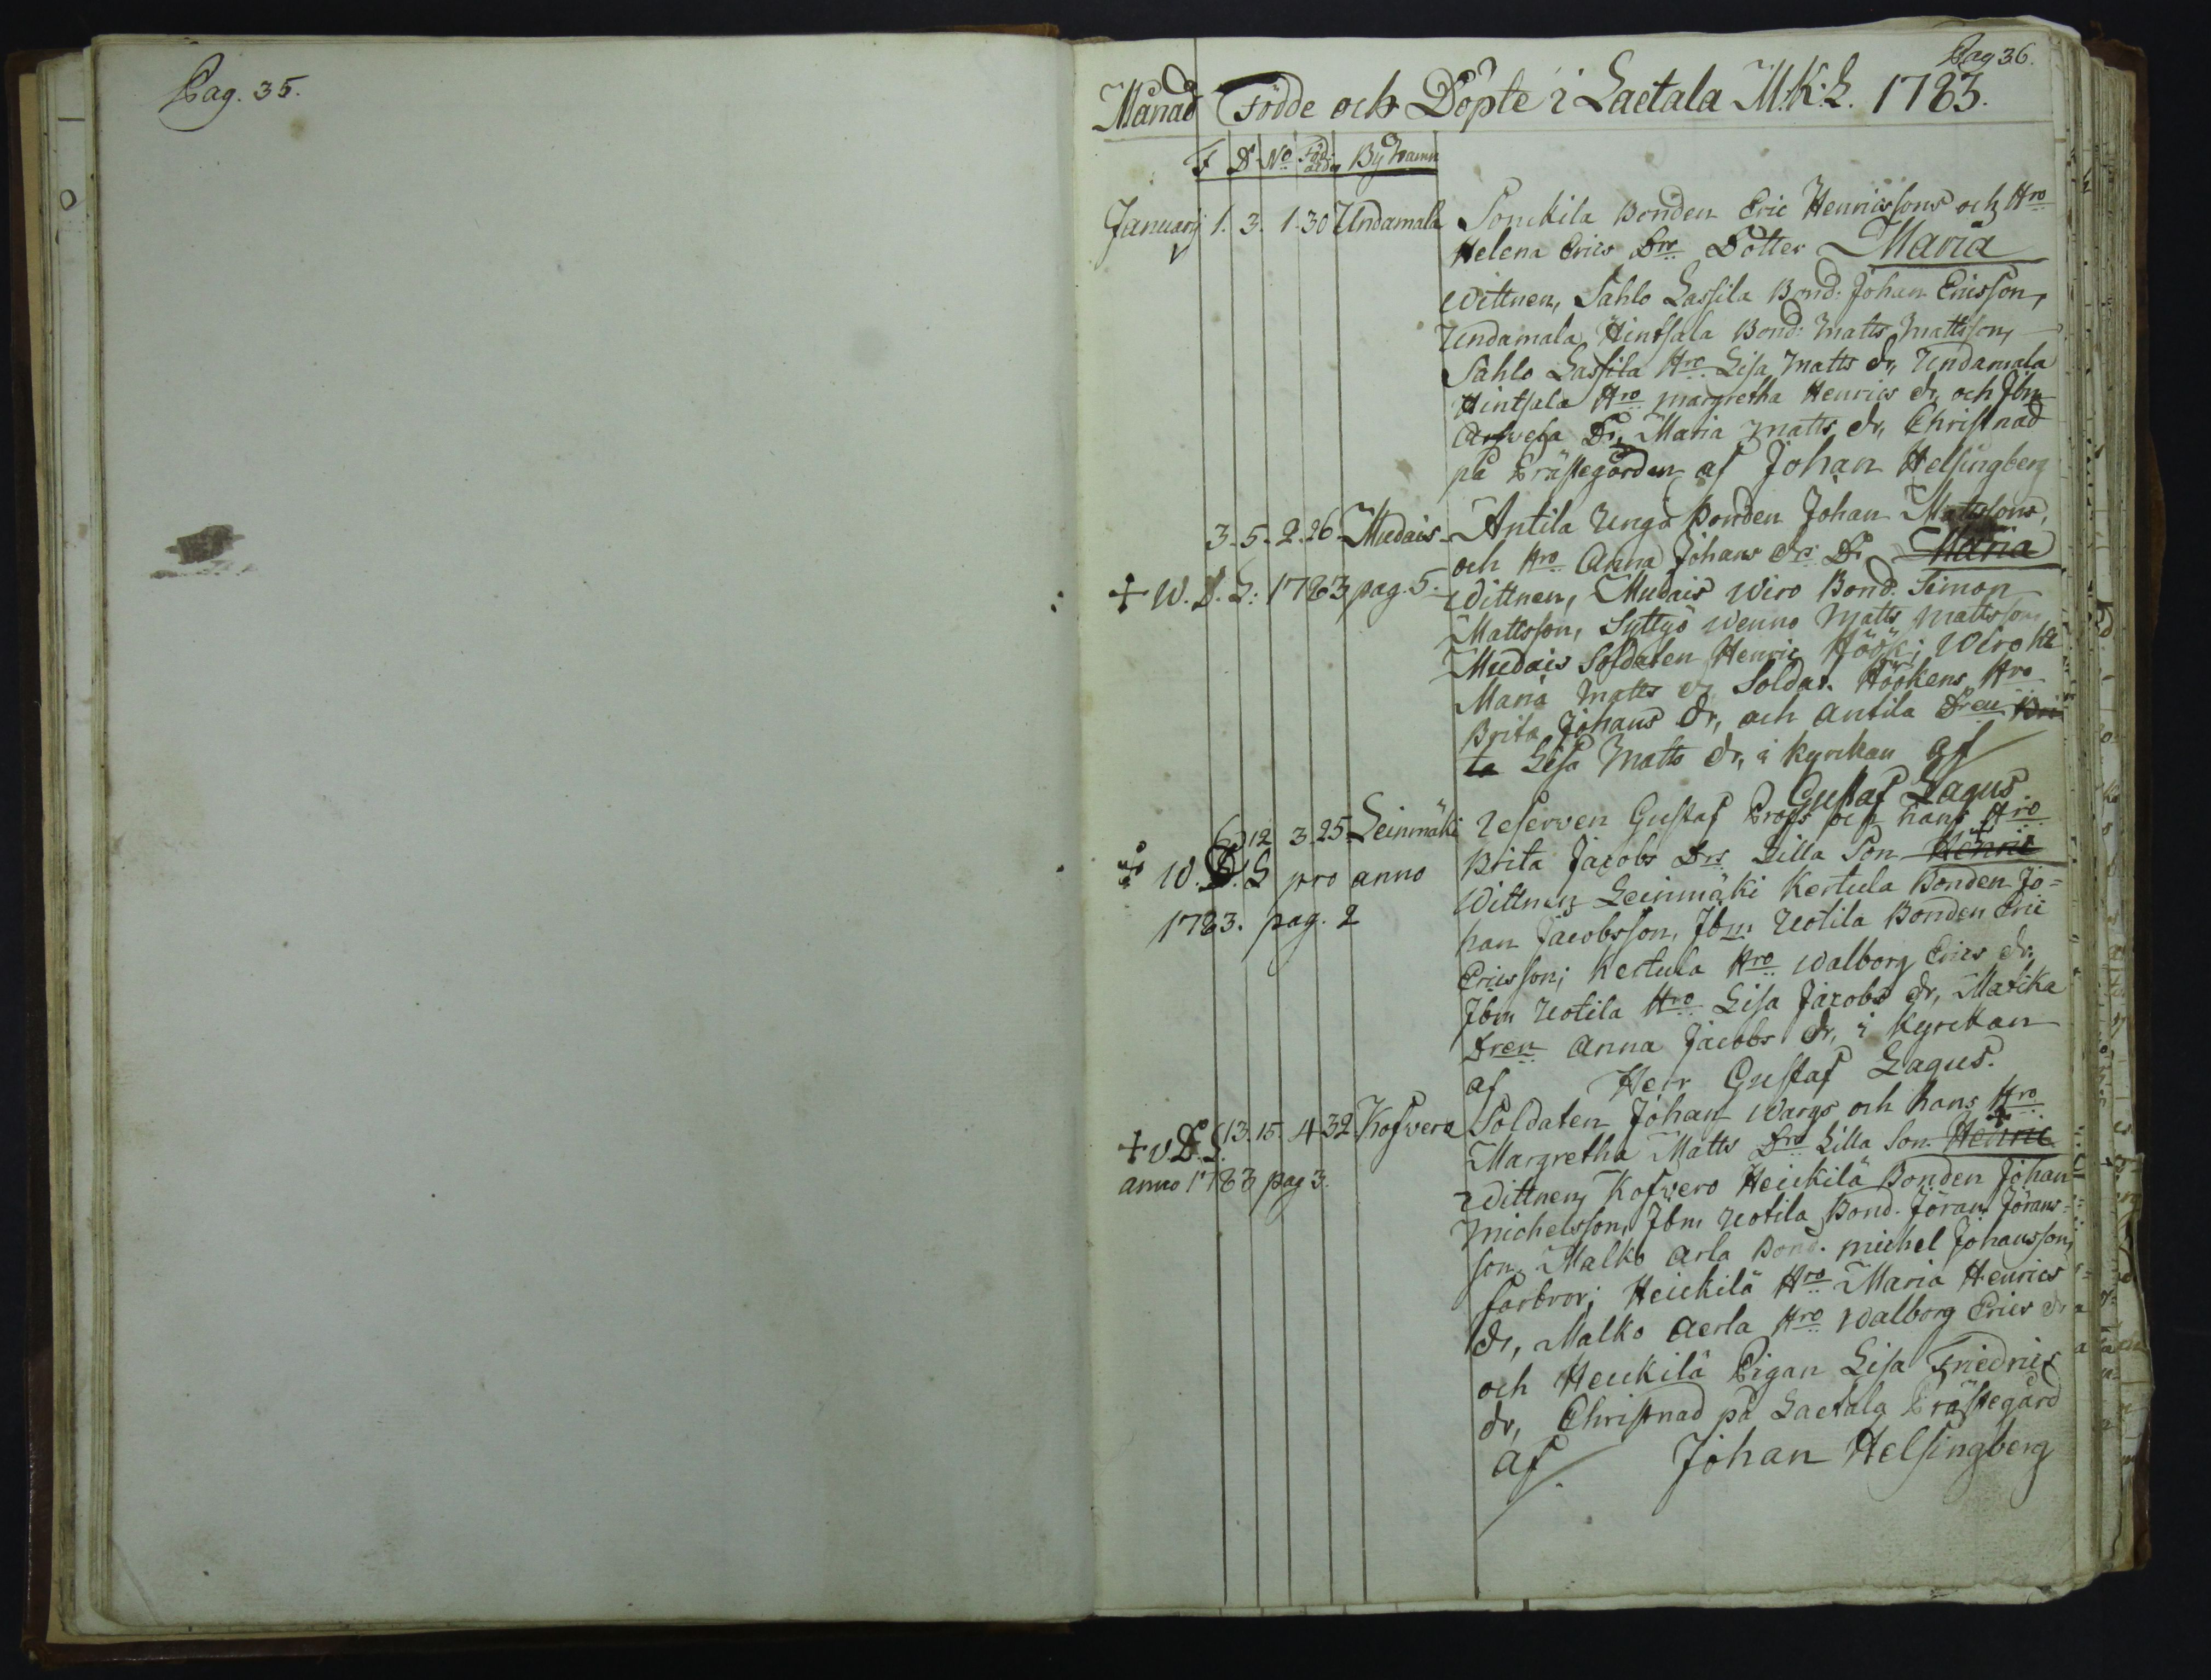 Pag. 35.
Pag 36.
Månad Födde och Döpte i Laetala M.K.L. 1783.
F D No Föd: ålder By Namn
Januarij 1. 3. 1. 30 Undamala Sonckila Bonden Eric Henricssons och Hro
Helena Erics Dro Dotter Maria
Wittnen, Sahlo Lassila Bond: Johan Ericsson,
Undamala Hintsala Bond: Matts Mattsson,
Sahlo Lassila Hro Lisa Matts dr, Undamala
Hintsala Hro Margretha Henrics dr, och Jbm
Dr, Maria Matts dr, Christnad
på Prästegården af Johan Helsingberg
3. 5. 2. 26 Mudais Antila Unga Bonden Johan Mattssons,
och Hro Anna Johans drs Dr Maria
+ W. D. L: 1783 pag. 5.
Wittnen, Mudais Wiro Bond. Simon
Mattsson, Syttyö Wenno Matts Mattsson
Mudais Soldaten Henric Höök; Wiro Hu
Maria Matts dr, Soldat. Höökens Hro
Brita Johans dr, och Antila Dren Bri
ta Lisa Matts dr, i kyrckan af
Gustaf Lagus
6 12 3. 25. Leinmäki Reserven Gustaf Profs och hans Hro
Brita Jacobs Drs Lilla Son Henric
W. D. L pro anno
1783. pag. 2
Wittnen Leinmäki Kertula Bonden Jo=
han Jacobsson, Jbm Uotila Bonden Eric
Ericsson; Kertula Hro Walborg Erics dr,
Jbm Uotila Hro Lisa Jacobs dr, Matika
Dren Anna Jacobs dr, i Kyrckan
af Herr Gustaf Lagus.
13. 15. 4 32. Kofvero Soldaten Johan Wargs och hans Hro
Margretha Matts Dro Lilla Son Henric
+ v D. L.
anno 1783 pag 3.
Wittnen, Kofvero Heickilä Bonden Johan
Michelsson, Jbm Uotila Bond. Jöran Jörans=
son. Malko Arla Bond. Michel Johansson,
farbror; Heickilä Hro Maria Henrics
dr, Malko Aerla Hro Walborg Erics dr
och Heickilä Pigan Lisa Friedrics
dr, Christnad på Laetala Prästegård
af Johan Helsingberg